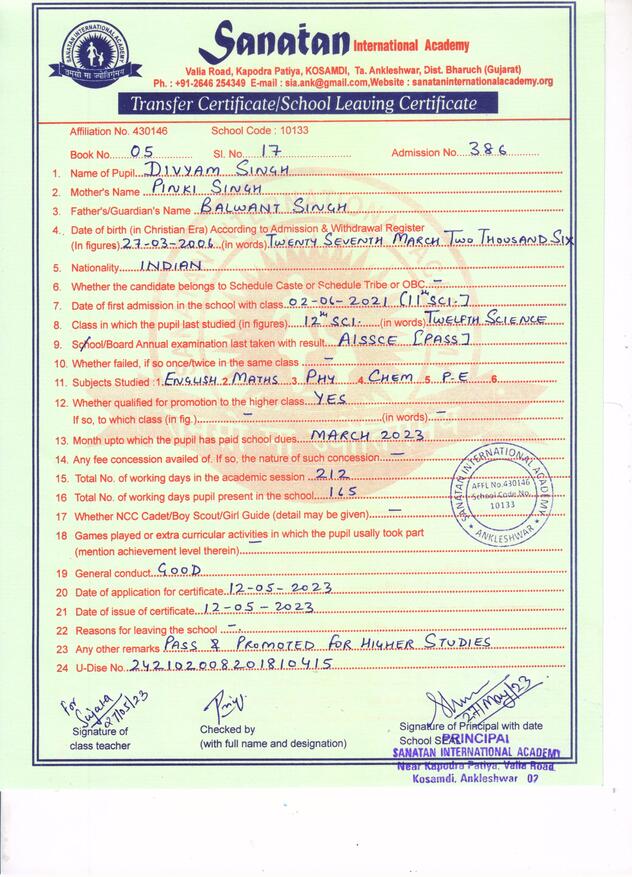 SANATAN INTERNATIONAL ACADEMY
तमसो मा ज्योतिर्गमय
Sanatan International Academy
Valia Road, Kapodra Patiya, KOSAMDI, Ta. Ankleshwar, Dist. Bharuch (Gujarat)
Ph. : +91-2646 254349 E-mail : sia.ank@gmail.com,Website : sanataninternationalacademy.org
Transfer Certificate/School Leaving Certificate
Affiliation No. 430146 School Code : 10133
Book No. 05 Sl. No. 17 Admission No. 386
1. Name of Pupil DIVYAM SINGH
2. Mother's Name PINKI SINGH
3. Father's/Guardian's Name BALWANT SINGH
4. Date of birth (in Christian Era) According to Admission & Withdrawal Register
(In figures) 27-03-2006 (in words) TWENTY SEVENTH MARCH TWO THOUSAND SIX
5. Nationality INDIAN
6. Whether the candidate belongs to Schedule Caste or Schedule Tribe or OBC. –
7. Date of first admission in the school with class 02-06-2021 (11th SCI.)
8. Class in which the pupil last studied (in figures) 12th SCI. (in words) TWELFTH SCIENCE
9. School/Board Annual examination last taken with result AISSCE [PASS]
10. Whether failed, if so once/twice in the same class –
11. Subjects Studied : 1. ENGLISH 2. MATHS 3. PHY 4. CHEM 5. P.E 6.
12. Whether qualified for promotion to the higher class YES
If so, to which class (in fig.) – (in words) –
13. Month upto which the pupil has paid school dues MARCH 2023
14. Any fee concession availed of. If so, the nature of such concession –
15. Total No. of working days in the academic session 212
16 Total No. of working days pupil present in the school 165
17 Whether NCC Cadet/Boy Scout/Girl Guide (detail may be given) –
18 Games played or extra curricular activities in which the pupil usally took part
(mention achievement level therein) –
19 General conduct GOOD
20 Date of application for certificate 12-05-2023
21 Date of issue of certificate 12-05-2023
22 Reasons for leaving the school –
23 Any other remarks PASS & PROMOTED FOR HIGHER STUDIES
24 U-Dise No. 242102008201810415
SANATAN INTERNATIONAL ACADEMY
AFFL No.430146
School Code No.
10133
* ANKLESHWAR *
For Sujata
27/05/23
27/May/23
Signature of
class teacher
Checked by
(with full name and designation)
Signature of Principal with date
School SEAL
PRINCIPAL
SANATAN INTERNATIONAL ACADEMY
Near Kapodra Patiya, Valia Road
Kosamdi, Ankleshwar 02